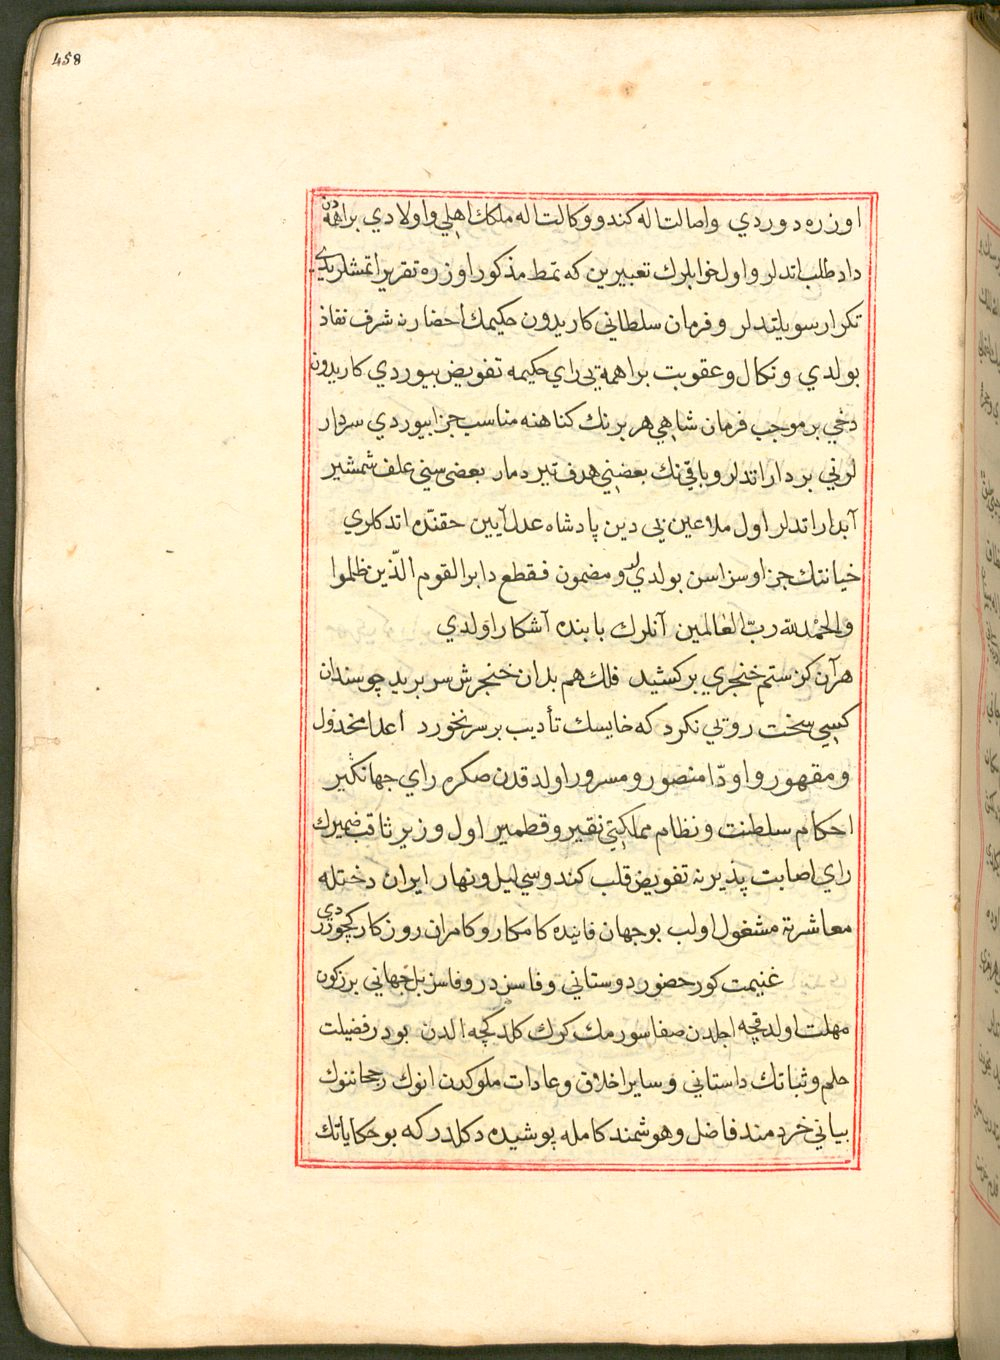 458
اوزره دوردي واصالت‌اله كندو ووكالت‌اله ملكك اهلي واولادي براهمه‌دن
داد طلب اتدلر واول خوابلرك تعبيرين كه نمط مذكور اوزره تقرير اتمشلريدي
تكرار سويلتدلر وفرمان سلطاني كاريدون حكيمك احضارنه شرف نفاذ
بولدي ونكال وعقوبت براهمه‌يي راي حكيمه تفويض بيوردي كاريدون
دخي بر موجب فرمان شاهي هر برنك كناهنه مناسب جزا بيوردي سردار
لرني بردار اتدلر وباقينك بعضني هدف تير دمار بعضى سني علف شمشير
آبدار اتدلر اول ملاعين بي دين پادشاه عدل آيين حقنده اتدكلري
خيانتك جزاو سزاسن بولديلر ومضمون فقطع دابر القوم الّذين ظلموا
والحمد لله ربّ العالمين آنلرك بابنده آشكار اولدي
هر آن كز ستم خنجري بركشيد فلك هم بدان خنجرش سر بريد چو سندان
كسي سخت رويي نكرد كه خايسك تأديب بر سر نخورد اعدا مخذول
ومقهور واودّا منصور ومسرور اولدقدن صكره راي جهانگير
احكام سلطنت ونظام مملكتي نقير وقطمير اول وزير ثاقب ضميرك
راي اصابت پذيرنه تفويض قلب كندوسي ليل ونهار ايران دختله
معاشرته مشغول اولب بو جهان فانيده كامكار وكامران روزكار كچوردي
غنيمت كور حضور دوستاني وفاسزدر وفاسز بل جهاني برزكون
مهلت اولدقچه اجلدن صفا سورمك كرك كلدكچه الدن بودر فضيلت
حلم وثباتك داستاني وساير اخلاق وعادات ملوكدن انوك رجحاننوك
بياني خردمند فاضل وهوشمند كامله پوشيده دكلدر كه بو حكاياتك